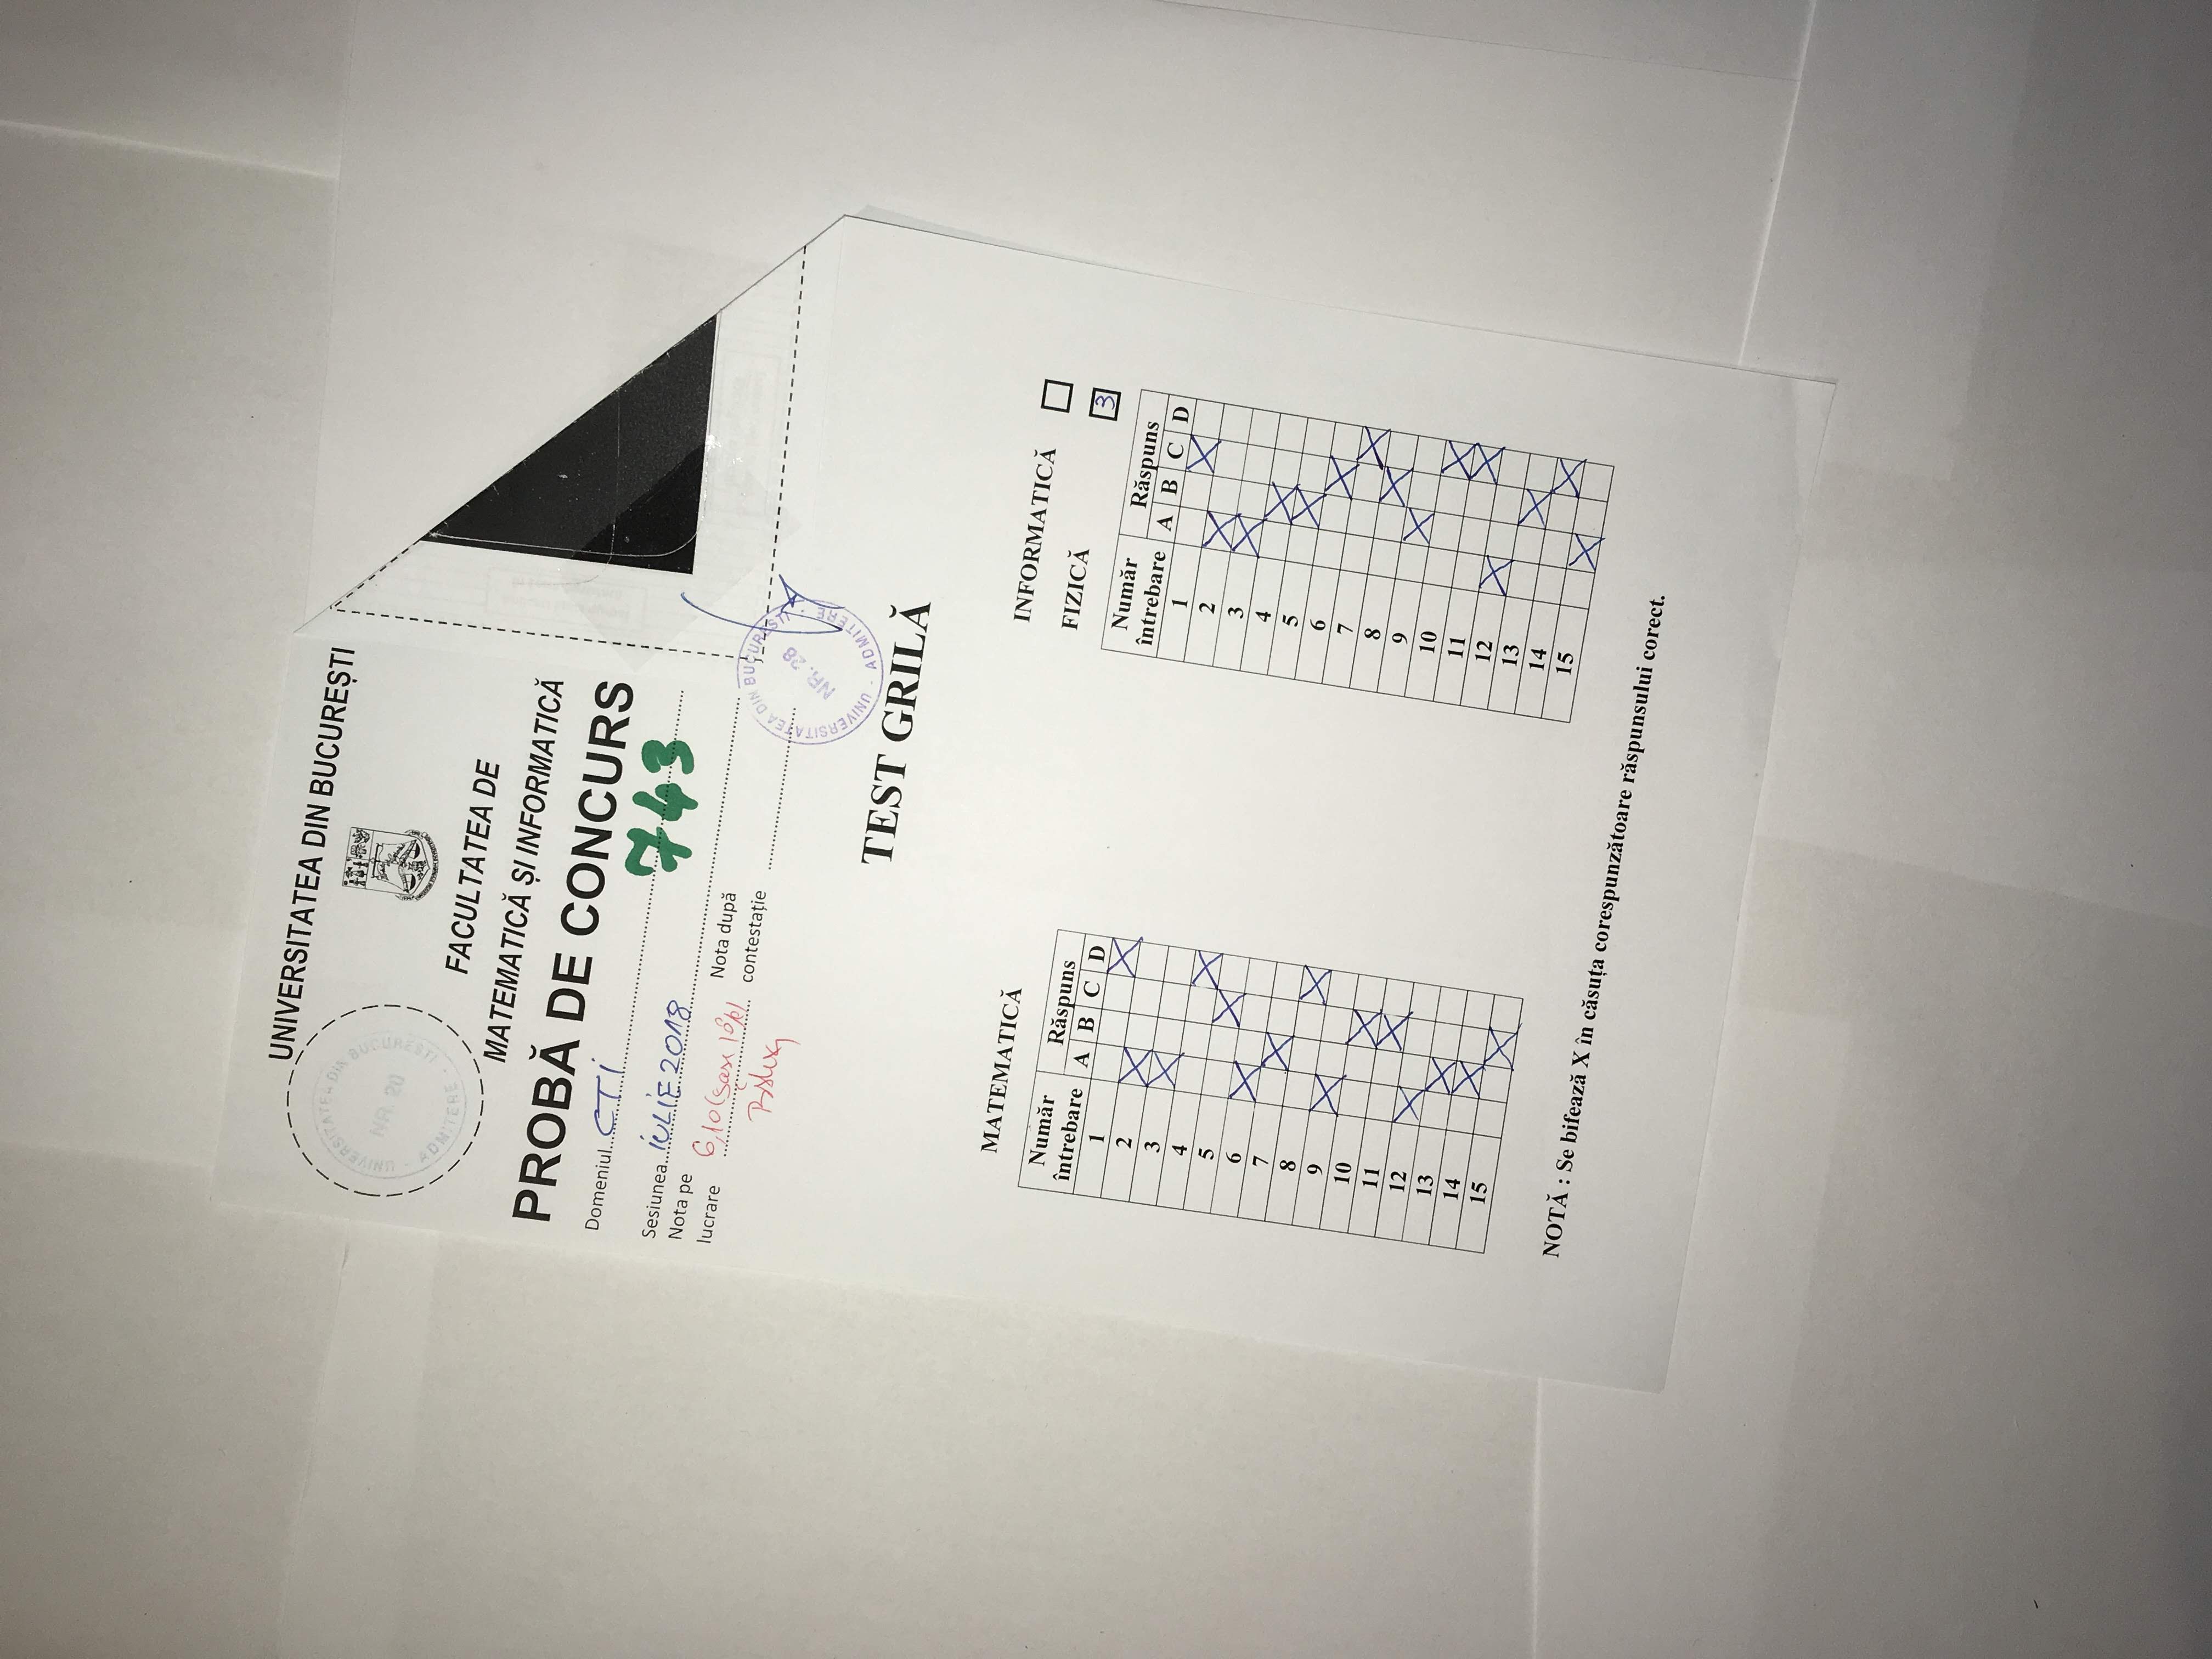 UNIVERSITATEA DIN BUCUREȘTI
UNIVERSITATEA DIN BUCUREȘTI · ADMITERE ·
NR. 20
FACULTATEA DE
MATEMATICĂ ȘI INFORMATICĂ
PROBĂ DE CONCURS
Domeniul CTI
743
Sesiunea IULIE 2018
Nota pe
lucrare 6,10 (șase 10%)
Nota după
contestație
UNIVERSITATEA DIN BUCUREȘTI - ADMITERE -
NR. 28
TEST GRILĂ
MATEMATICĂ
Număr întrebare Răspuns
A B C D
1 X
2 X
3 X
4 X
5 X
6 X
7 X
8 X
9 X
10 X
11 X
12 X
13 X
14 X
15 X
INFORMATICĂ
FIZICĂ 3
Număr întrebare Răspuns
A B C D
1 X
2 X
3 X
4 X
5 X
6 X
7 X
8 X
9 X
10 X
11 X
12 X
13 X
14 X
15 X
NOTĂ : Se bifează X în căsuța corespunzătoare răspunsului corect.